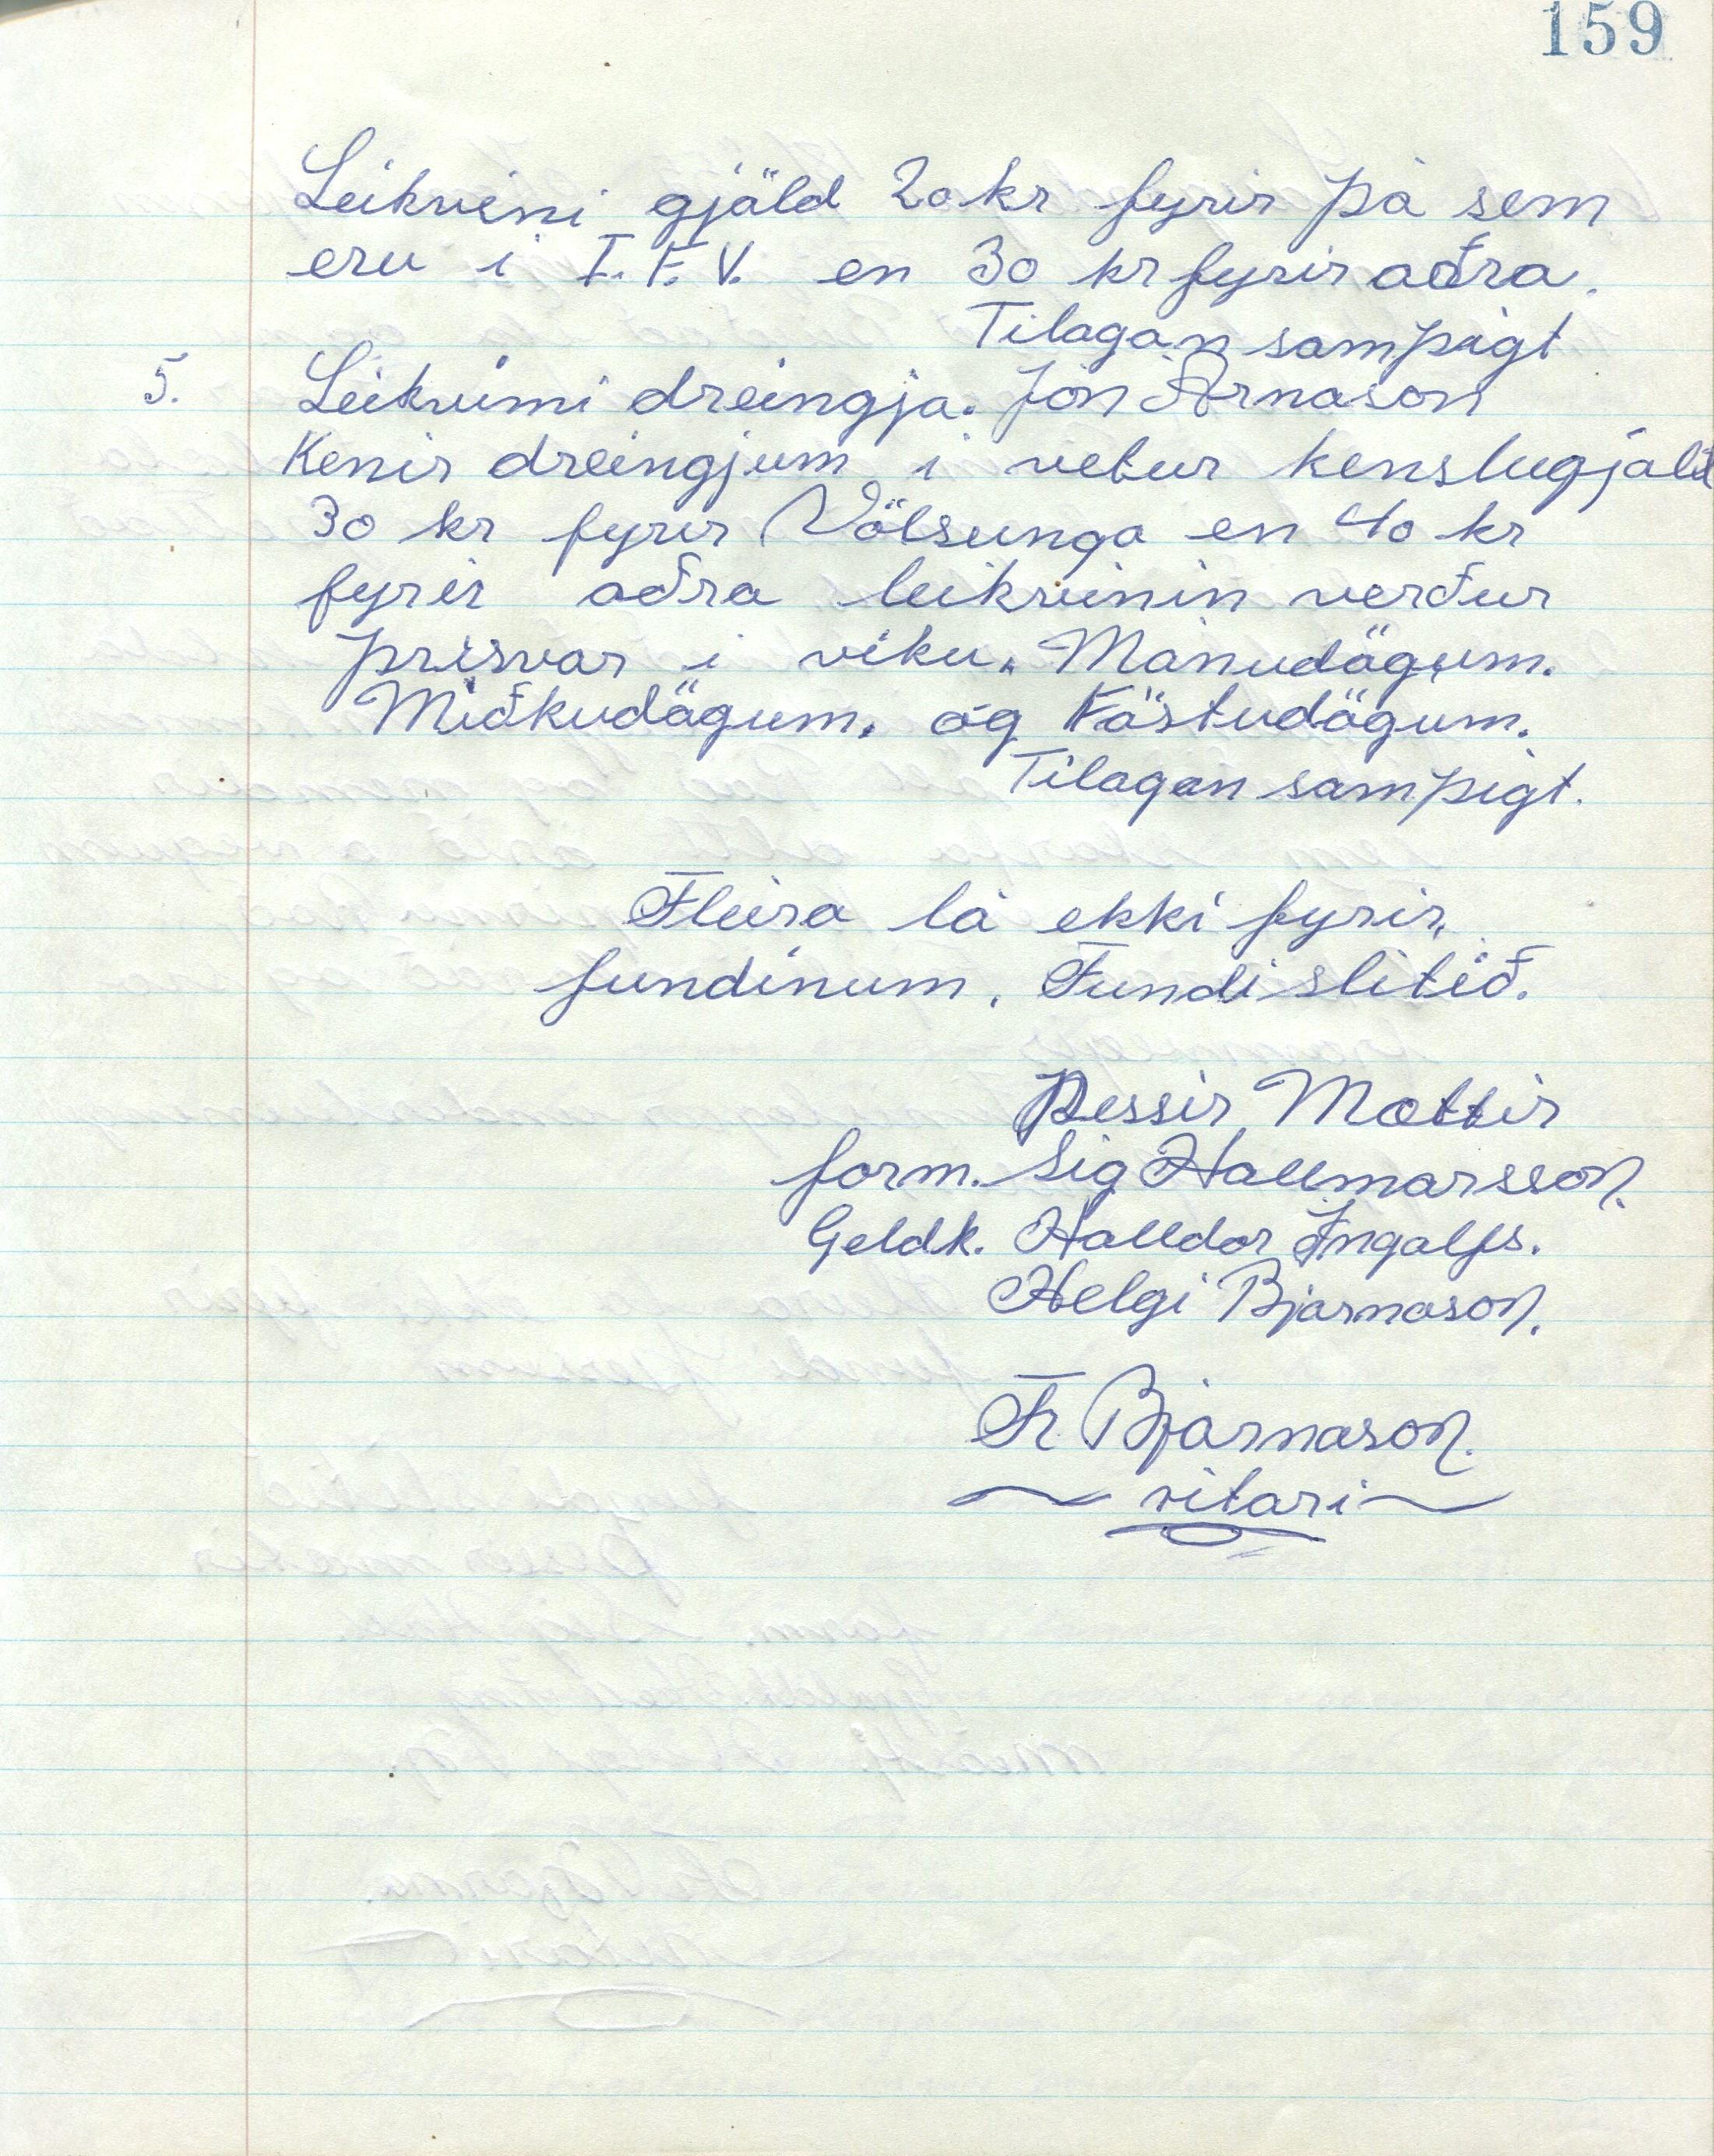 159
Leikvimi gjäld 20 kr fyrir þá sem
eru i I.F.V. en 30 kr fyrir aðra.
Tilagan samþigt
5. Leikvimi dreingja. Jón Árnason
Kenir dreingjum i vetur kenslugjald
30 kr fyrir Völsunga en 40 kr
fyrir aðra leikvimin verður
þrisvar i viku. Mánudägum.
Miðkudägum. og Föstudögum.
Tilagan samþigt.
Fleira lá ekki fyrir,
fundinum. Fundi slitið.
Þessir Mættir
form. Sig Hallmarsson.
Geldk. Halldor Ingolfs.
Helgi Bjarnason.
Fr. Bjarnason.
ritari